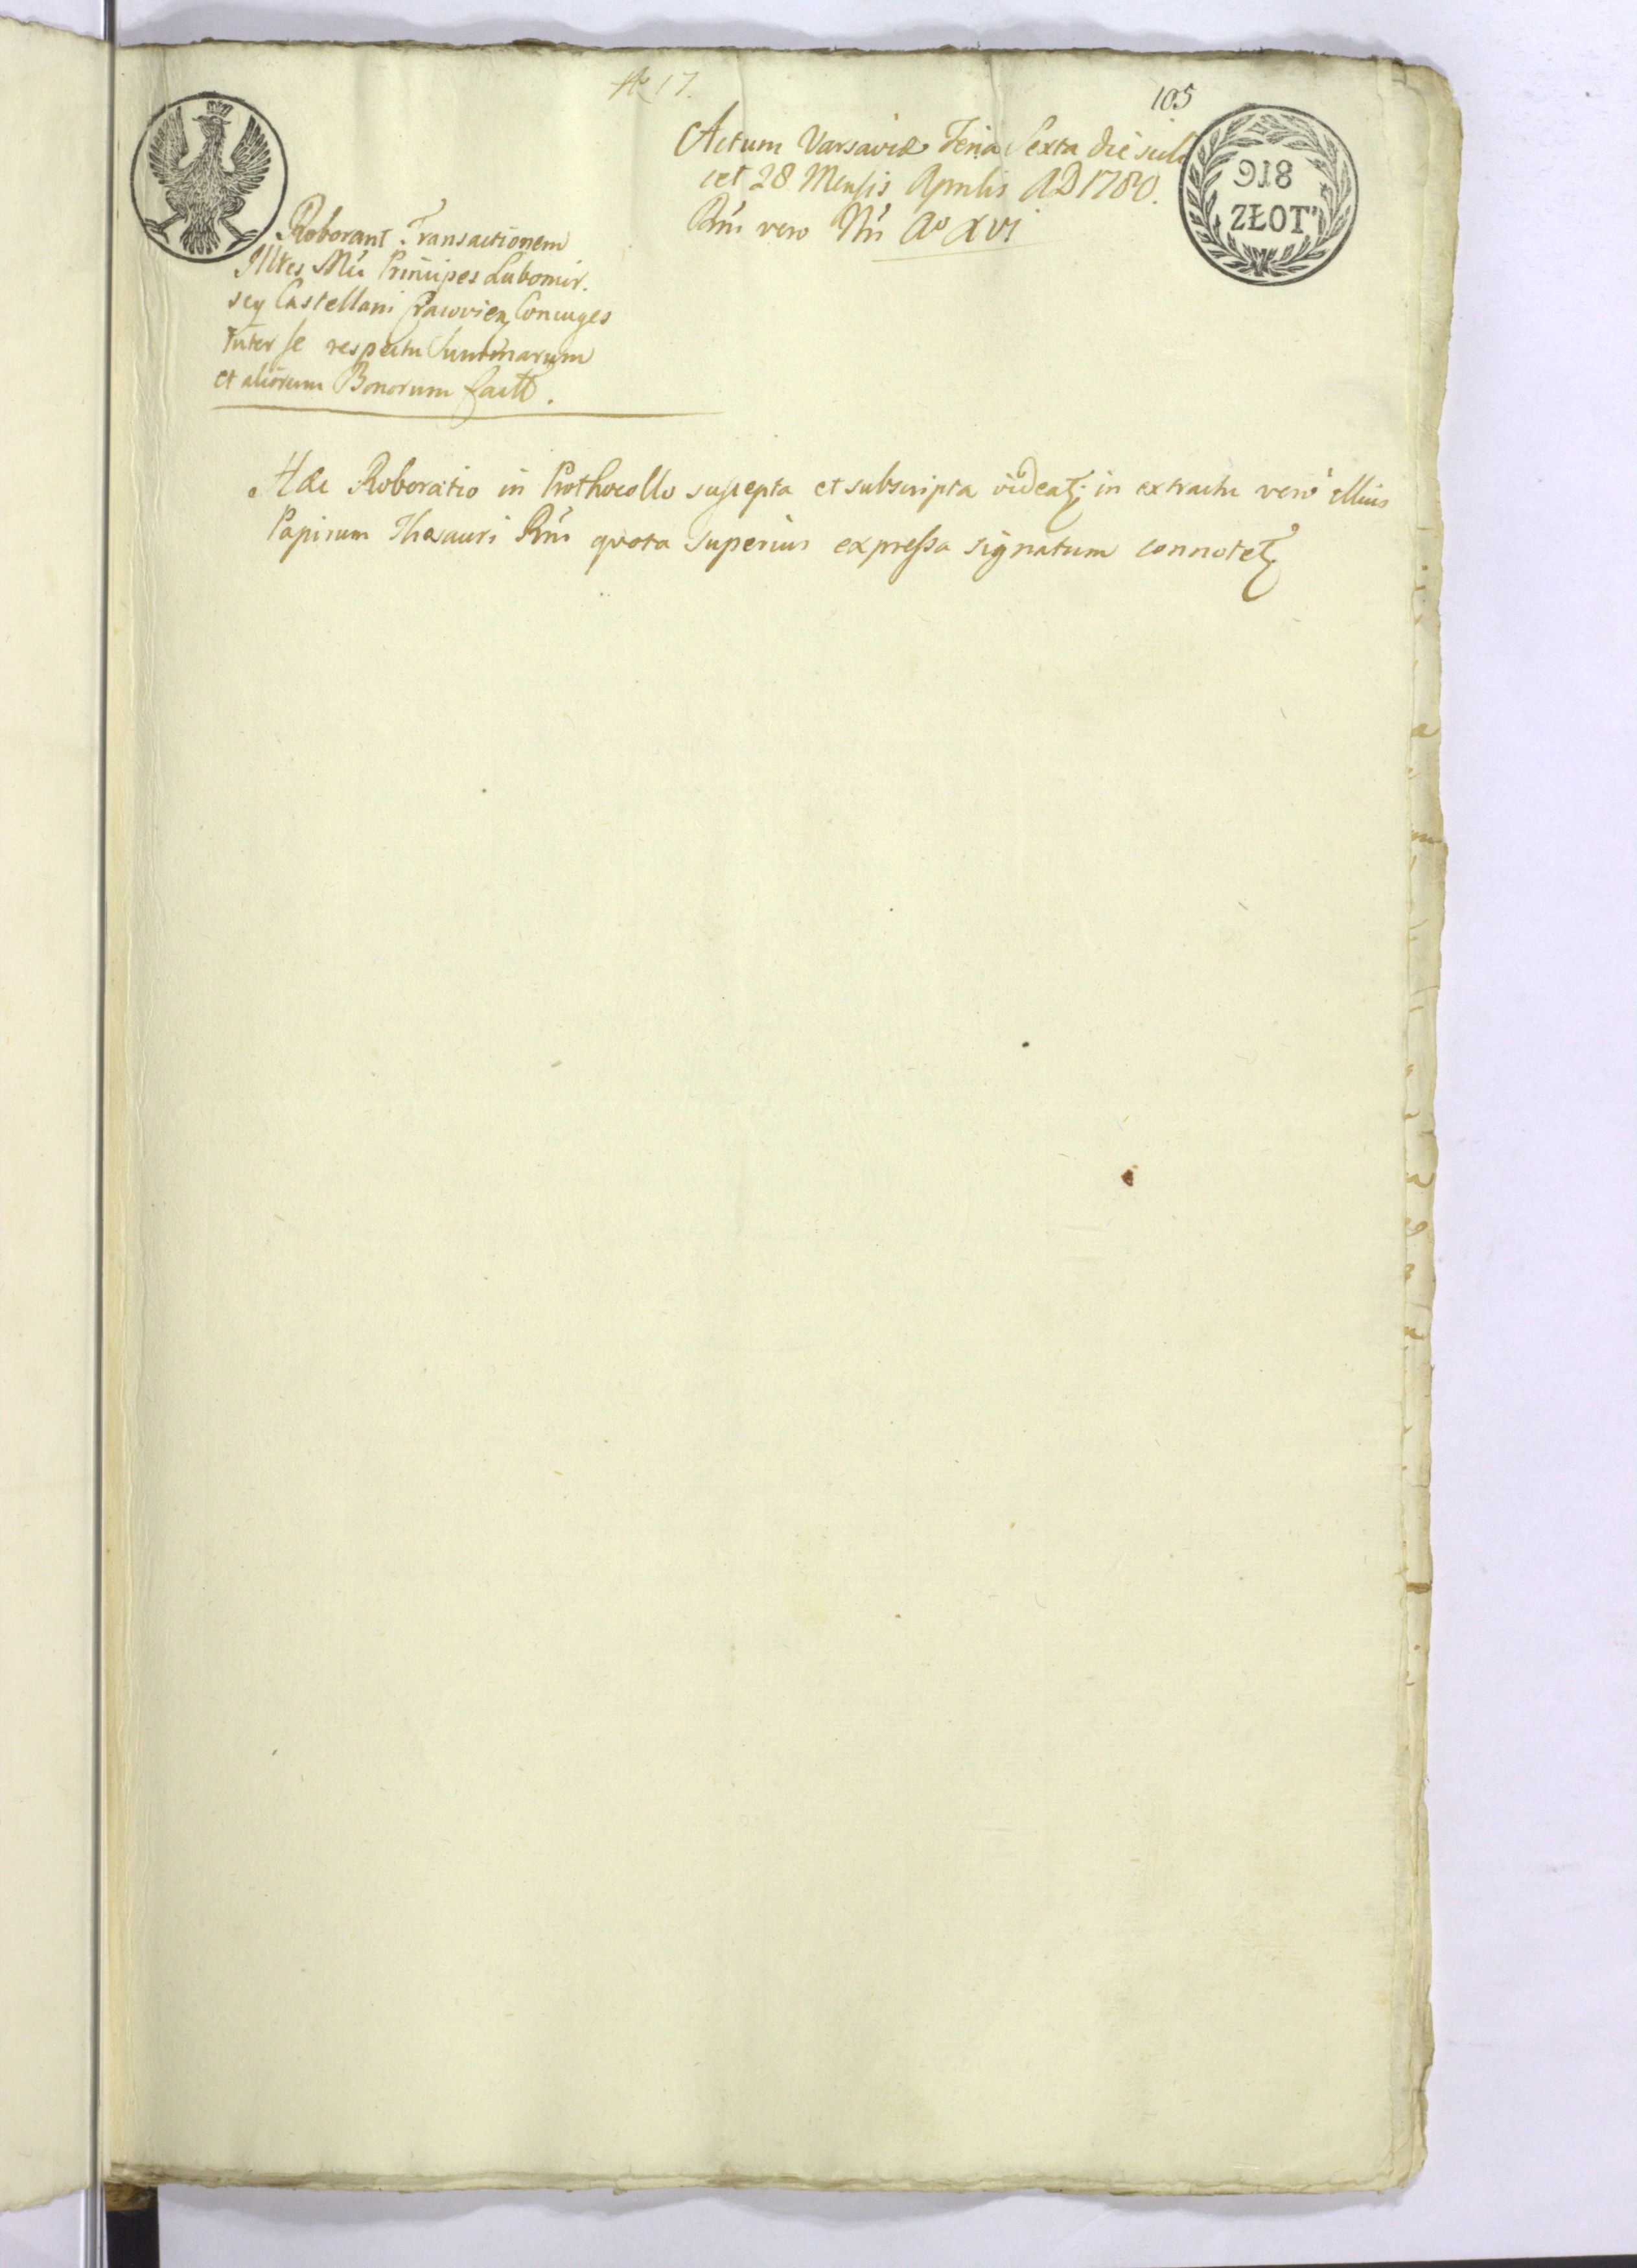 № 17.
105
Actum Varsaviæ Feria Sexta die scili
cet 28 Mensis Aprilis AD 1780.
Rni vero Nri Ao XVI
918
ZŁOT'
Roborant Transactionem
Illres Mci Principes Lubomir.
scy Castellani Cracovien Conjuges
inter se respectu Summarum
et aliorum Bonorum fact.
Hæc Roboratio in Prothocollo suscepta et subscripta videat in extractu vero illius
Papirum Thesauri Rni quota superius expressa signatum connotet